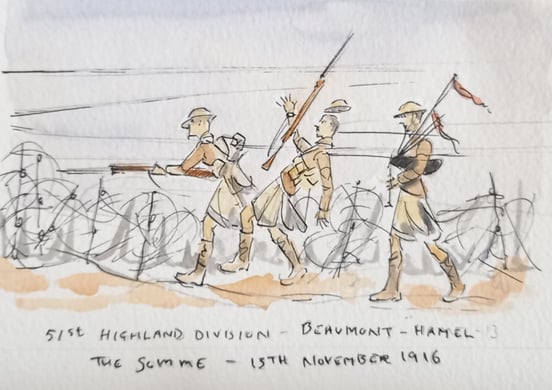 51st HIGHLAND DIVISION - BEAUMONT - HAMEL
THE SOMME - 13TH NOVEMBER 1916